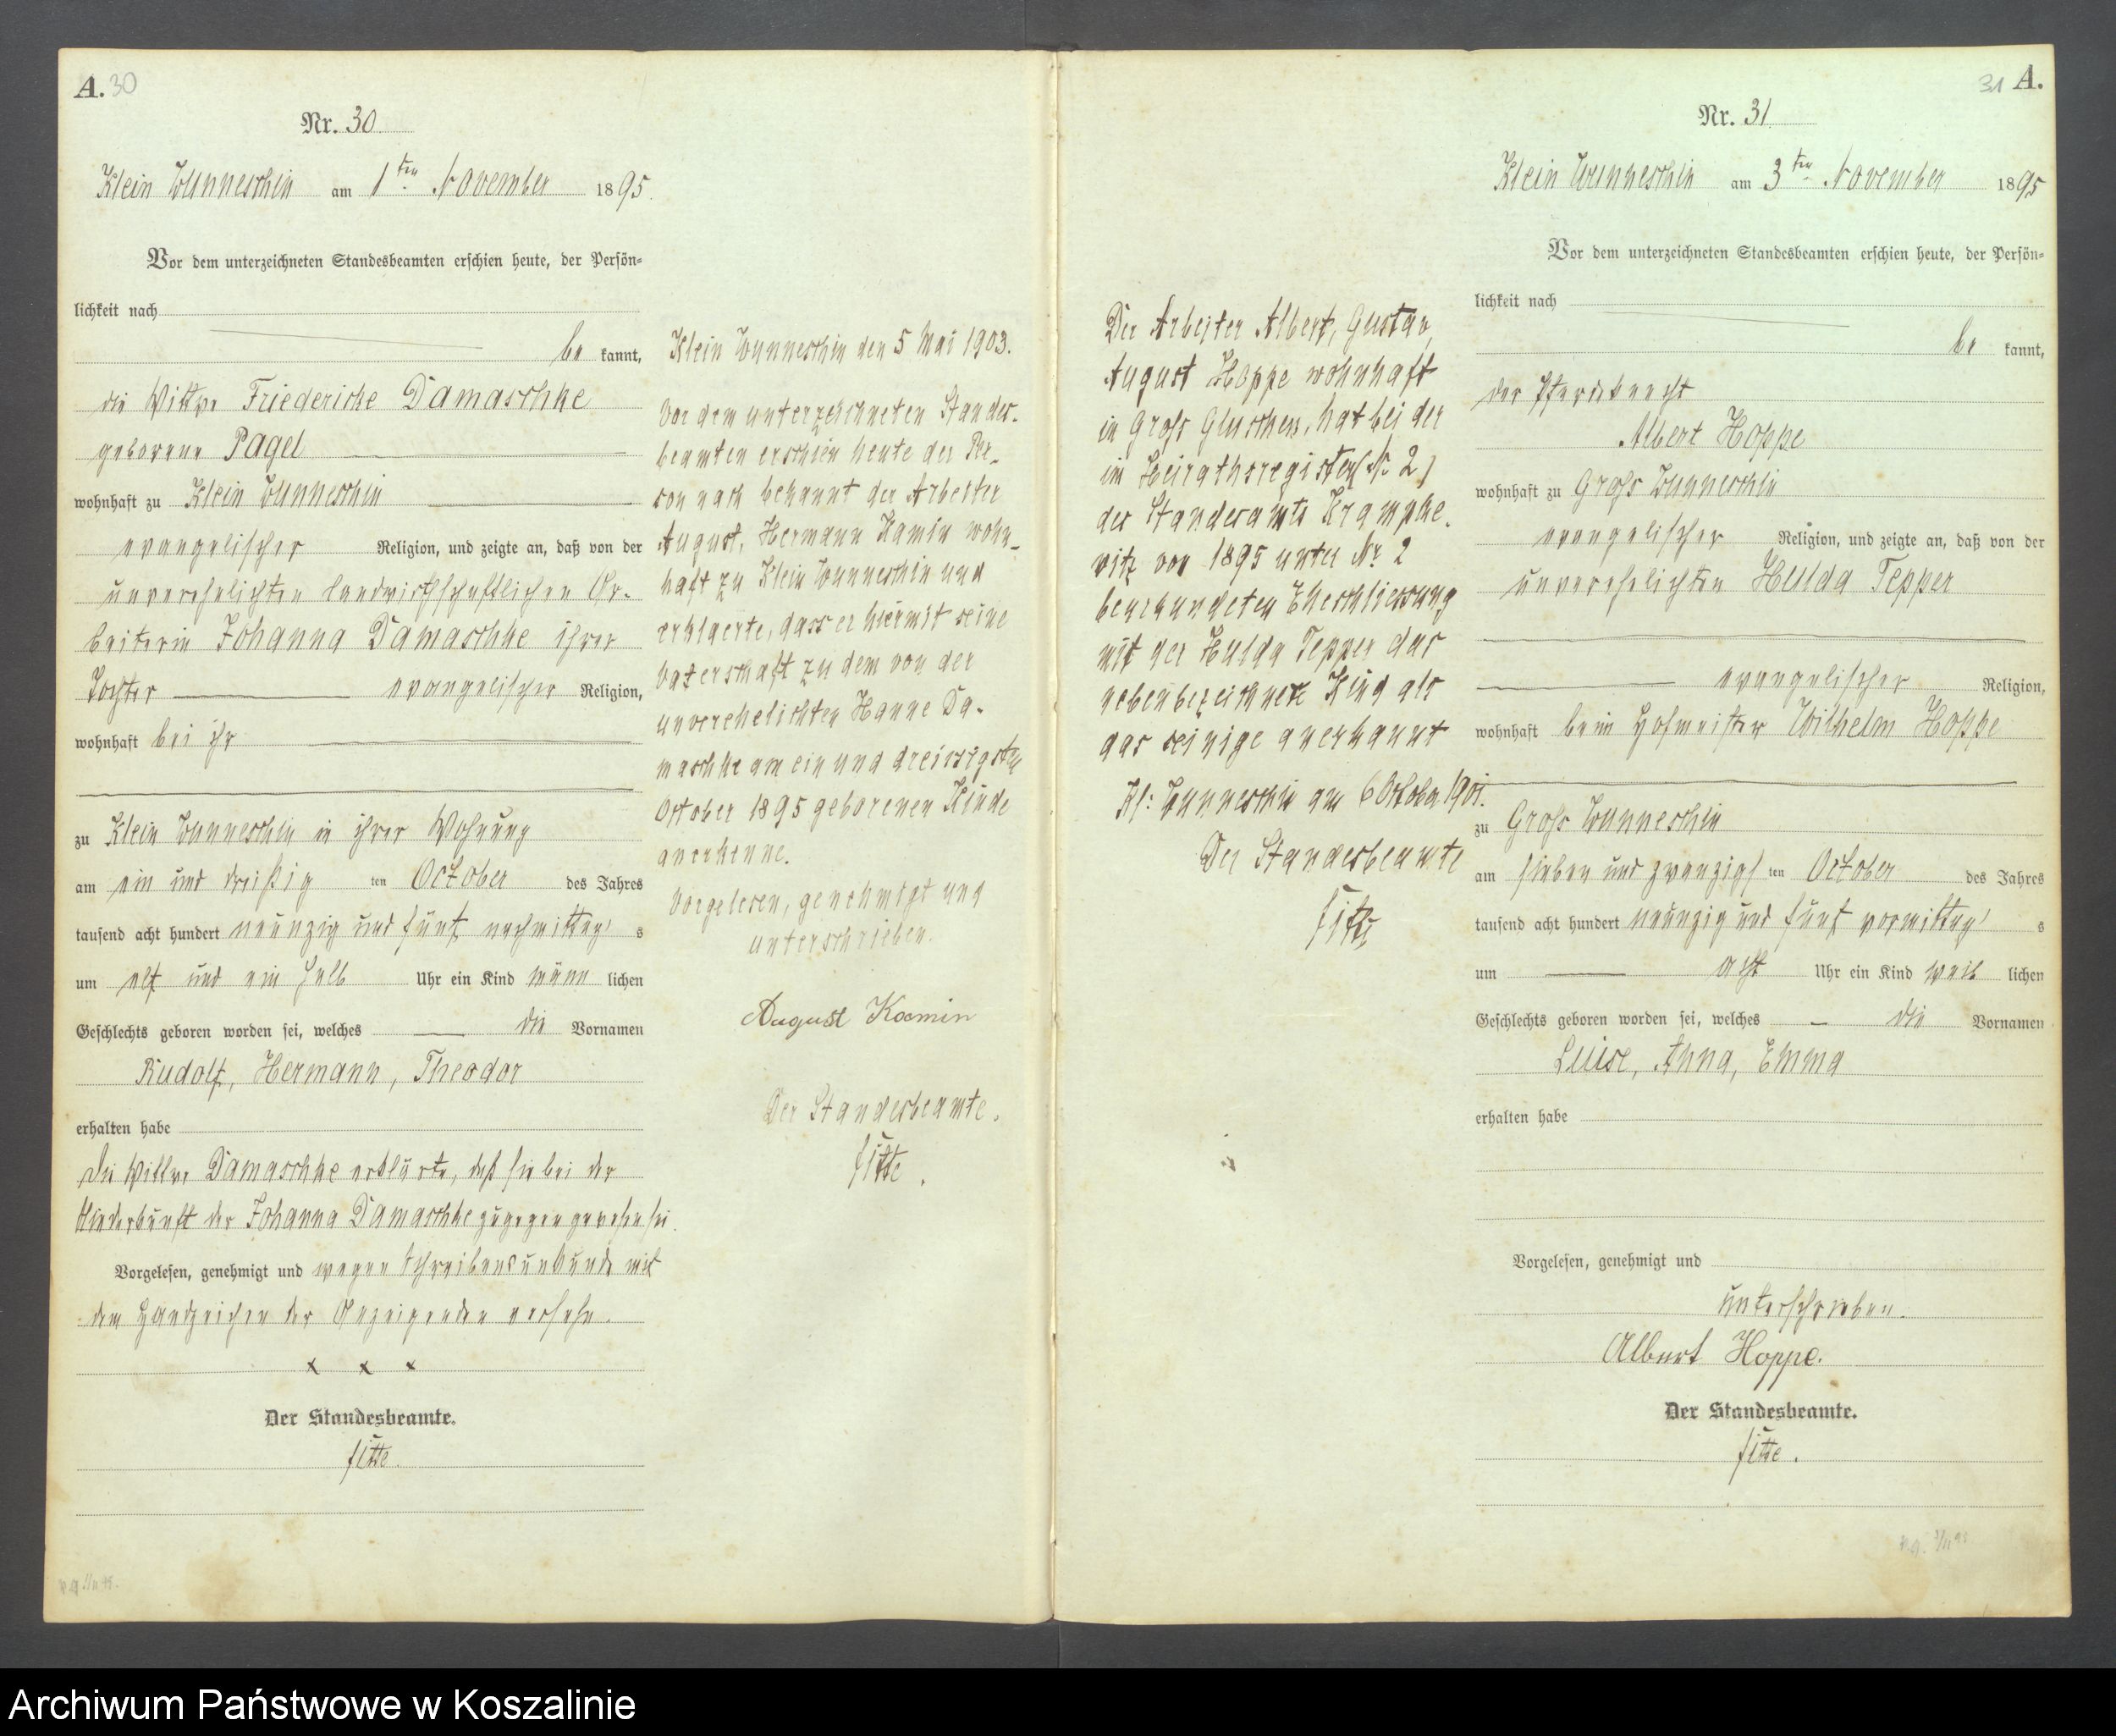 A. 30
Nr. 30
Klein Wunneschin am 1ten November 1895.
Vor dem unterzeichneten Standesbeamten erschien heute, der Persön=
lichkeit nach
be kannt,
die Wittwe Friederike Damaschke
geborene Pagel
wohnhaft zu Klein Wunneschin
evangelischer Religion, und zeigte an, daß von der
unverehelichten landwirthschaftlichen Ar-
beiterin Johanna Damaschke ihrer
Tochter evangelischer Religion,
wohnhaft bei ihr
zu Klein Wunneschin in ihrer Wohnung
am ein und dreißig ten October des Jahres
tausend acht hundert neunzig und fünf nachmittag s
um elf und ein halb Uhr ein Kind männ lichen
Geschlechts geboren worden sei, welches die Vornamen
Rudolf, Hermann, Theodor
erhalten habe
Die Wittwe Damaschke erklärte, daß sie bei der
Niederkunft der Johanna Damaschke zugegen gewesen sei.
Vorgelesen, genehmigt und wegen Schreibensunkunde mit
dem Handzeichen der Anzeigenden versehn.
x x x
Der Standesbeamte.
Fitte.
Klein Wunneschin den 5 Mai 1903.
Vor dem unterzeichneten Standes-
beamten erschien heute der Per-
son nach bekannt der Arbeiter
August, Hermann Kamin wohn-
haft zu Klein Wunneschin und
erklaerte, dass er hiermit seine
Vaterschaft zu dem von der
unverehelichten Hanne Da-
maschke am ein und dreissigsten
October 1895 geborenen Kinde
anerkenne.
Vorgelesen, genehmigt und
unterschrieben.
August Kamin
Der Standesbeamte.
Fitte.
Der Arbeiter Albert, Gustav,
August Hoppe wohnhaft
in Gross Gluschen, hat bei der
im Heirathsregister (Nr. 2)
des Standesamts Krampke-
witz von 1895 unter Nr. 2
beurkundeten Eheschliessung
mit der Hulda Tepper das
nebenbezeichnete Kind als
das seinige anerkannt
Kl: Wunneschin am 6 October 1901.
Der Standesbeamte
Fitte
31 A.
Nr. 31
Klein Wunneschin am 3ten November 1895
Vor dem unterzeichneten Standesbeamten erschien heute, der Persön=
lichkeit nach
be kannt,
der Pferdeknecht
Albert Hoppe
wohnhaft zu Gross Wunneschin
evangelischer Religion, und zeigte an, daß von der
unverehelichten Hulda Tepper
evangelischer Religion,
wohnhaft beim Hofmeister Wilhelm Hoppe
zu Gross Wunneschin
am sieben und zwanzigs ten October des Jahres
tausend acht hundert neunzig und fünf vormittag s
um acht Uhr ein Kind weib lichen
Geschlechts geboren worden sei, welches die Vornamen
Luise, Anna, Emma
erhalten habe
Vorgelesen, genehmigt und
unterschrieben.
Albert Hoppe.
Der Standesbeamte.
Fitte.
Archiwum Państwowe w Koszalinie